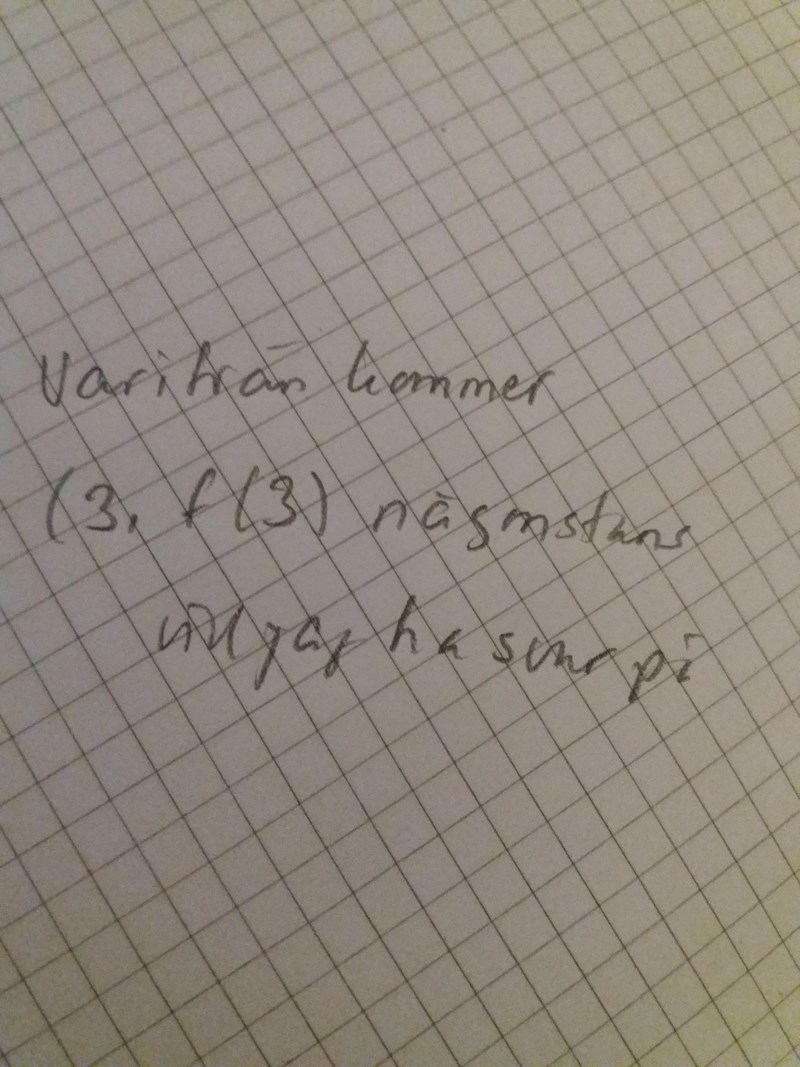 Varifrån kommer
(3, f(3) någonstans
vill jag ha svar på